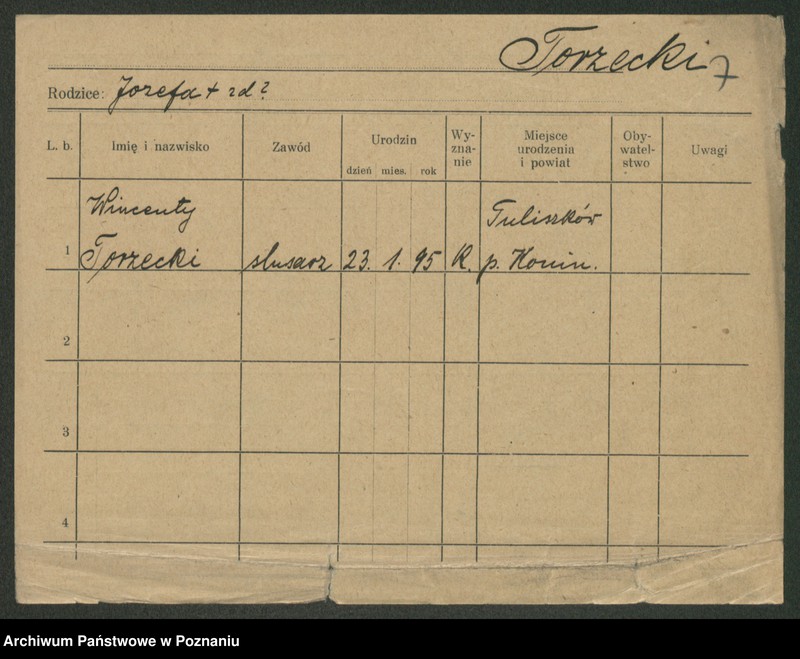 Torzecki 7
Rodzice: Jozefa + zd?
L. b. Imię i nazwisko Zawód Urodzin dzień mies. rok Wy-zna-nie Miejsce urodzenia i powiat Oby-watel-stwo Uwagi
Wincenty Tuliszków
1 Torzecki slusarz 23. 1. 95 K. p. Konin.
2
3
4
Archiwum Państwowe w Poznaniu